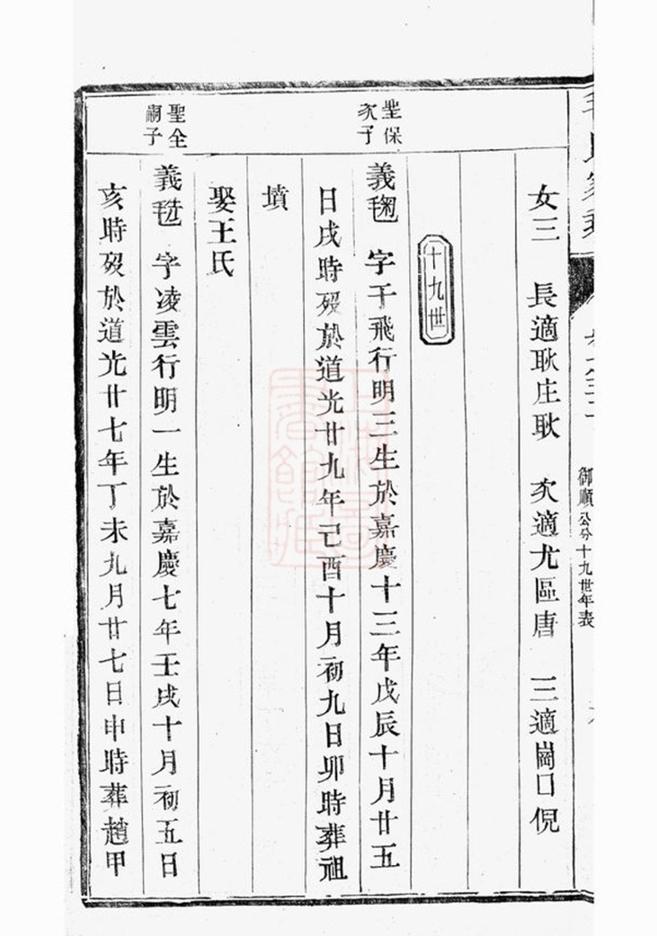 御順公分十九世年表
女三　長適耿庄耿　次適尤區唐　三適崗口倪
十九世
聖保
次子
義𣮉　字于飛行明三生於嘉慶十三年戊辰十月廿五
日戌時歿於道光廿九年己酉十月初九日卯時葬祖
墳
娶王氏
聖全
嗣子
義　字凌雲行明一生於嘉慶七年壬戌十月初五日
亥時歿於道光廿七年丁未九月廿七日申時葬趙甲